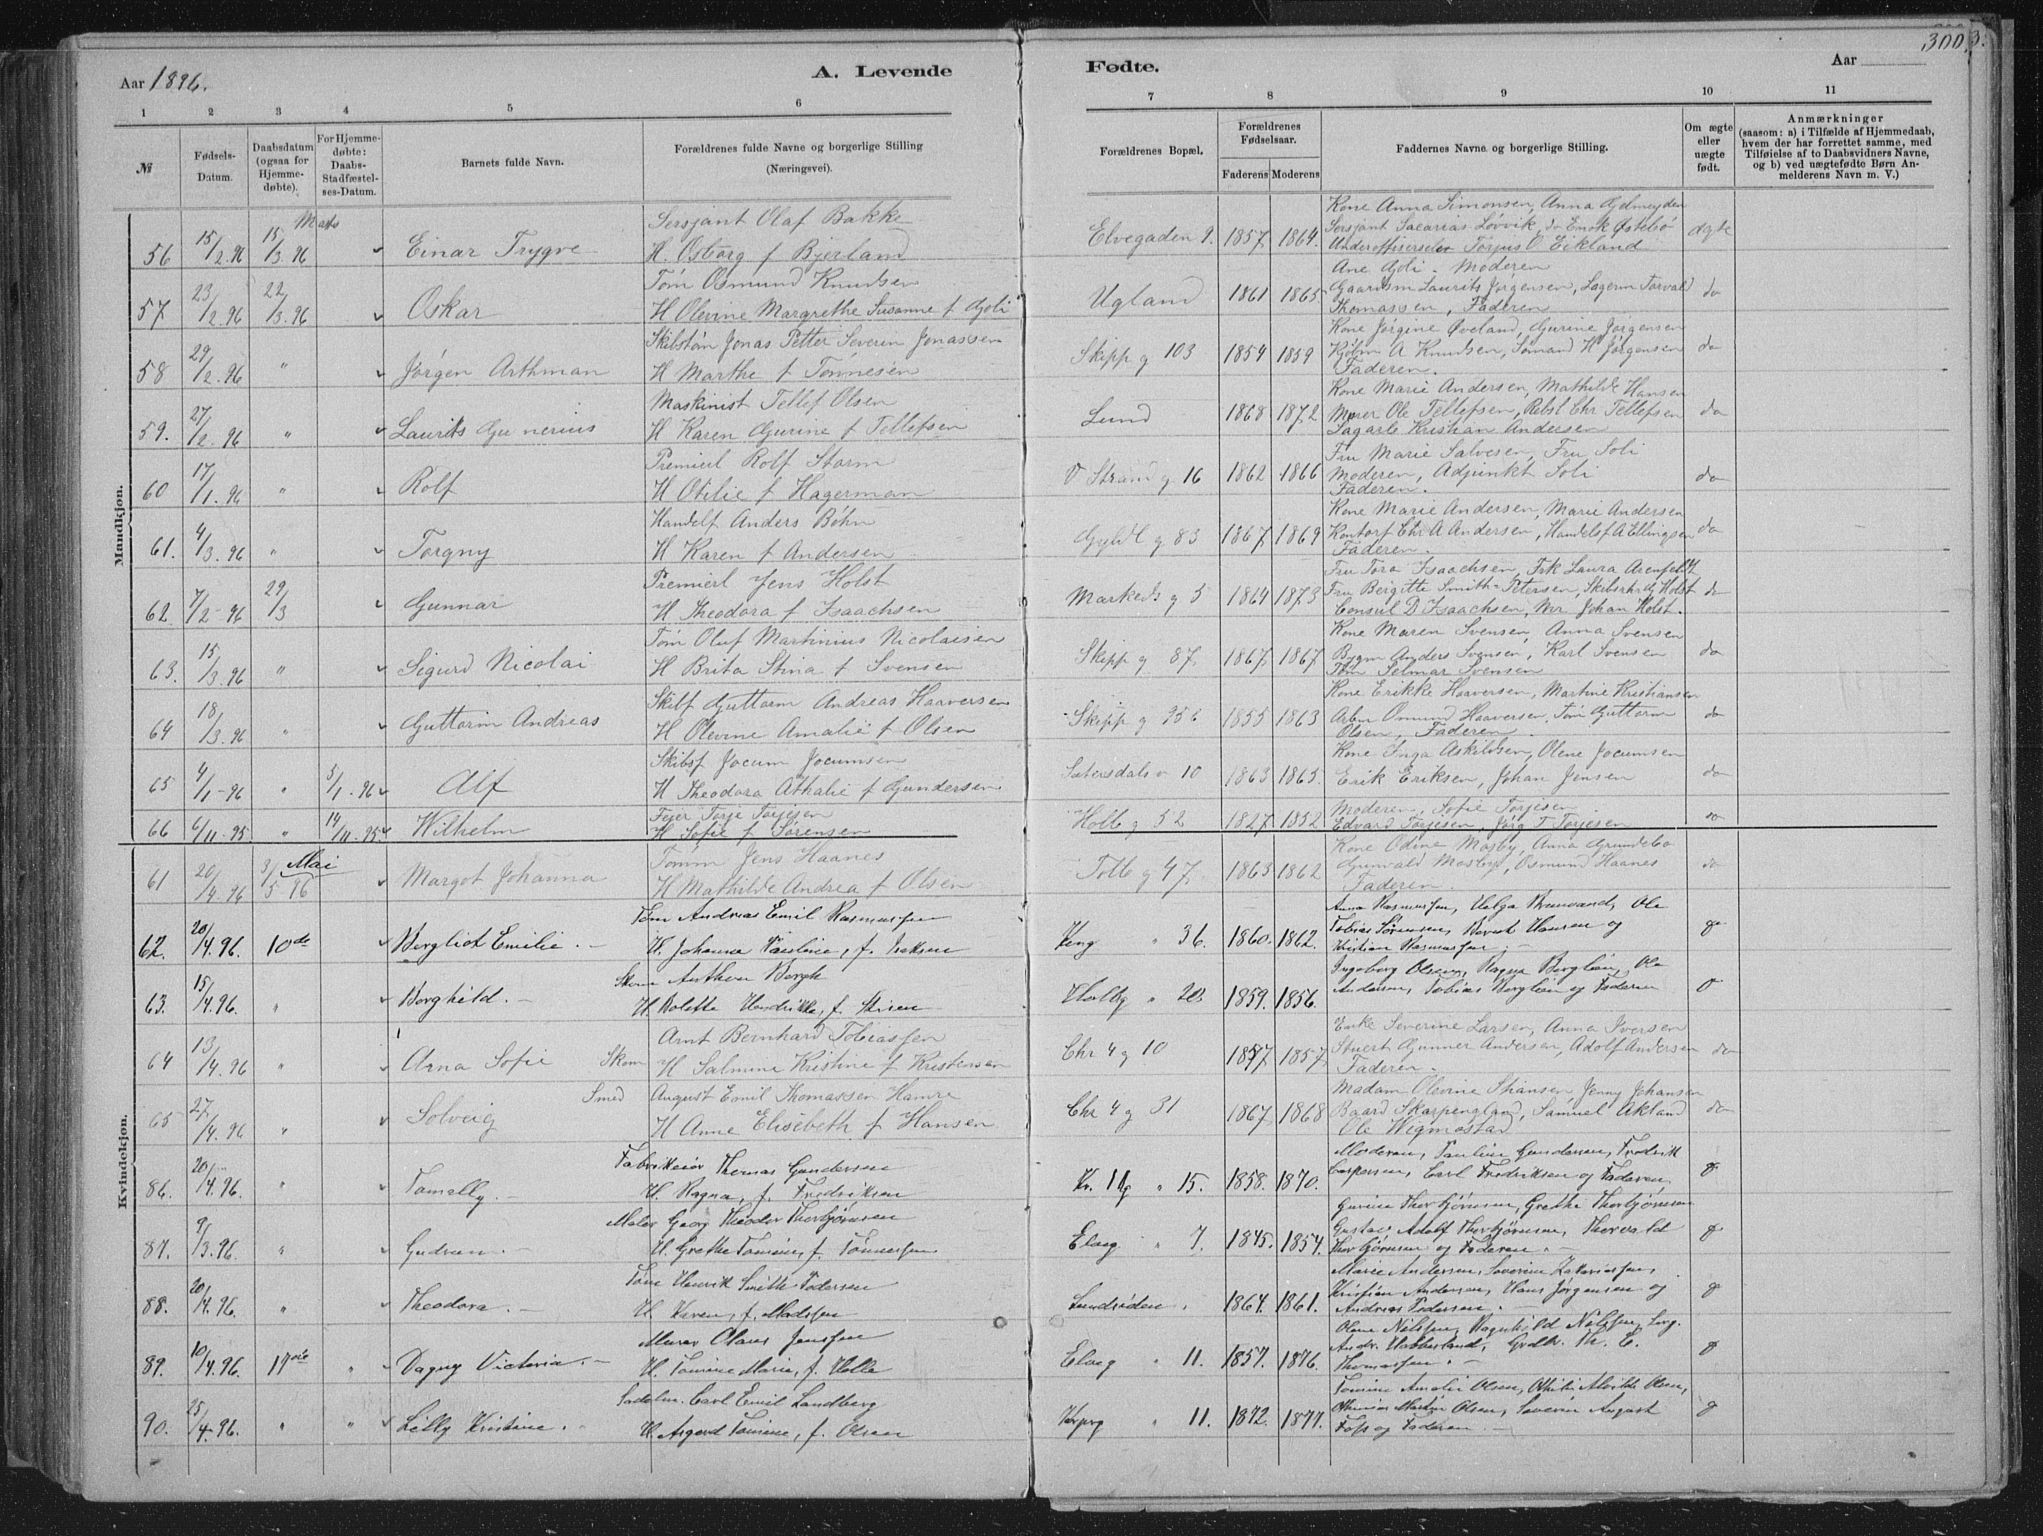 300
Aar 1896.
A. Levende
Fødte.
Aar
1 2 3 4 5 6 7 8 9 10 11
№
Fødsels-Datum.
Daabsdatum (ogsaa for Hjemmedøbte).
For Hjemmedøbte: Daabs-Stadfæstelses-Datum.
Barnets fulde Navn.
Forældrenes fulde Navne og borgerlige Stilling (Næringsvei).
Forældrenes Bopæl.
Forældrenes Fødselsaar.
Faderens Moderens
Faddernes Navne og borgerlige Stilling.
Om ægte eller uægte født.
Anmærkninger
(saasom: a) i Tilfælde af Hjemmedaab, hvem der har forrettet samme, med Tilføielse af to Daabsvidners Navne, og b) ved uægtefødte Børn Anmelderens Navn m. V.)
Mandkjøn.
Marts
56 15/2.96 15/3.96 Einar Trygve
Sersjant Olaf Bakke
H. Osborg f Bjerland
Elvegaden 9. 1857. 1864.
Kone Anna Simonsen, Anna
Sersjant Sacarias Løvvik, do Enok Østebø
Torjus O Eikland
ægte
57 23/2.96 22/3.96 Oskar
Tøm Osmund Knudsen
H Olevine Margrethe Susanne f Gjoli
Ugland 1861 1865
Ane Gjoli. Moderen
Gaardsm Laurits Jørgensen, Lagerm Torvald
Thomassen, Faderen
do
58 29/2.96 " Jørgen Arthman
Skibstøm Jonas Petter Severin Jonassen
H Marthe f Tønnesen
Skipp g 103 1854 1859
Kone Jørgine Øveland, Gurine Jørgensen
Kjøbm A Knudsen, Sømand H Jørgensen
Faderen.
do
59. 27/2.96 " Laurits Gunerius
Maskinist Tellef Olsen
H Karen Gurine f Tellefsen
Lund 1868 1872
Kone Marie Andersen, Mathilde Hansen
Murer Ole Tellefsen, Rebsl Chr Tellefsen
Kristian Andersen
do
60 17/1.96 " Rolf
Premierl Rolf Storm
H Otilie f Hagerman
V Strand g 16 1862 1866
Fru Marie Salvesen, Fru Soli
Moderen, Adjunkt Soli
Faderen.
do
61. 4/3.96 " Torgny
Handelf Anders Bøhn
H Karen f Andersen
Gyldl g 83 1867. 1869
Kone Marie Andersen, Marie Andersen
Kontorf Chr A Andersen, Handelsf A Ellingsen
Faderen.
do
62 7/2-96 29/3 Gunnar
Premierl Jens Holst
H Theodora f Isaachsen
Markeds g 5 1864 1873
Fru Tora Isaachsen, Frk Laura Arenfeldt
Fru Bergitte Smith-Petersen, Skibsrh Holst
Consul D Isaachsen, Johan Holst.
do
63. 15/3.96 " Sigurd Nicolai
Tøm Oluf Martinius Nicolaisen
H Brita Stina f Svensen
Skipp g 87. 1867. 1867
Kone Maren Svensen, Anna Svensen
Bygm Anders Svensen, Karl Svensen
Tøm Selmar Svensen
do
64 18/3.96 " Guttorm Andreas
Skibf Guttorm Andreas Haaversen
H Olevine Amalie f Olsen
Skipp g 256 1855 1863
Kone Erikke Haaversen, Martine Kristiansen
Arbm Osmund Haaversen, Tøm Guttorm
Olsen, Faderen.
do
65 4/1-96 " 5/1.96 Alf
Skibsf Jocum Jocumsen
H Theodora Athalie f Gundersen
Setersdals v 10 1863 1865.
Kone Inga Askildsen, Olene Jocumsen
Erik Eriksen, Johan Jensen
do
66 4/11.95. " 14/11.95. Wilhelm
Feier Torje Torjesen
H Sofie f Sørensen
Holb g 52 1827 1852
Moderen, Sofie Torjesen
Edvard Torjesen Jørg T Torjesen
do
Kvindekjøn.
Mai
61 20/4.96 3/5 96 Margot Johanna
Tømm Jens Haanes
H Mathilde Andrea f Olsen
Tolb g 47. 1863 1862
Kone Odine Mosby, Anna Grundebo
Grunvald Mosby, Osmund Haanes
Faderen.
do
62. 20/4.96. 10de Bergliot Emilie.
Tøm Andreas Emil Rasmussen
H. Johanna Pauline, f. Isaksen
Kong " 36. 1860. 1862.
Anna Rasmussen, Helga Brunvand, Ole
Tobias Sørensen, Berent Hansen og
Kristian Rasmussen.
63. 15/4.96. " Borghild.
Skom Anthon Bergh
H. Bolette Hendrikke, f.
Holbg " 20. 1859. 1856.
Ingeborg Olsen, Ragna Berglien, Ole
Andersen, Tobias Berglien og Faderen
64 13/4.96 " Arna Sofie
Skom Arnt Bernhard Tobiassen
H Salmine Kristine f Kristensen
Chr 4 g 10 1857. 1857.
Enke Severine Larsen, Anna Iversen
Stuert Gunner Andersen, Adolf Andersen
Faderen.
do
65 27/4.96 " Solveig
Smed August Emil Thomassen Hamre
H Anne Elisebeth f Hansen
Chr 4 g 31 1867. 1868
Madam Olevine Jenny Johansen
Baard Skarpengland, Samuel Akland
Ole Wigmostad
do
86. 20/4.96. " Tomelly.
Fabrikeier Thomas Gundersen
H. Ragna, f. Fredriksen
15. 1858. 1870.
Moderen, Pauline Gundersen, Fredrik
Caspersen, Carl Fredriksen og Faderen
87. 9/3.96. " Gudrun.
Maler Georg Theodor Thorbjørnsen
H. Grethe Tomine, f. Tønnessen
Elveg " 7. 1845. 1854.
Gurine Thorbjørnsen, Grethe Thorbjørnsen
Gustav Adolf Thorbjørnsen, Thorvald
Thorbjørnsen og Faderen.
88. 20/4.96. " Theodora.
Tøm Henrik Smith Pedersen
H. Karen, f. Madssen
Lundsiden. 1864. 1861.
Marie Andersen, Severine Zakariassen,
Kristian Andersen, Hans Jørgensen og
Andreas Pedersen.
89. 10/4.96. 17de " Dagny Victoria.
Murer Olaus Jenssen
H. Tomine Marie, f. Holle
Elveg " 11. 1857. 1876.
Olene Nilssen, Ragnhild Nilssen,
Andr. Habberstad, Th. E.
Thomassen.
90. 25/4.96. " " Lilly Kristine.
Sadelm. Carl Emil Landberg
H. Asgerd Tomine, f. Olsen
11. 1872. 1877.
Tomine Amalie Olsen, Othilie Alvilde Olsen,
Martin Olsen, Severin August
Foss og Faderen.